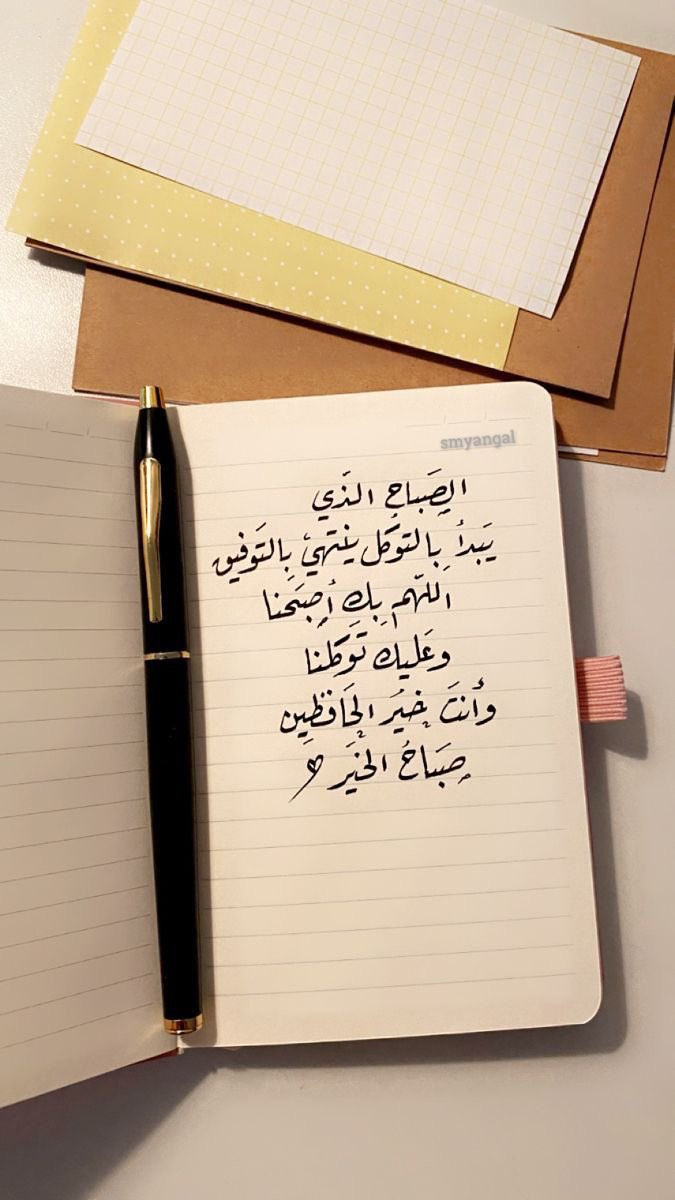 smyangal
الصَباحِ الذّي
يَبدأ بِالتوكل ينتهيْ بِالتَوفيق
اللهّم بِكِ أصبَحنا
وعَليك تَوكلنا
وأنتَ خيرُ الحَافظين
صَبَاحُ الخيَر